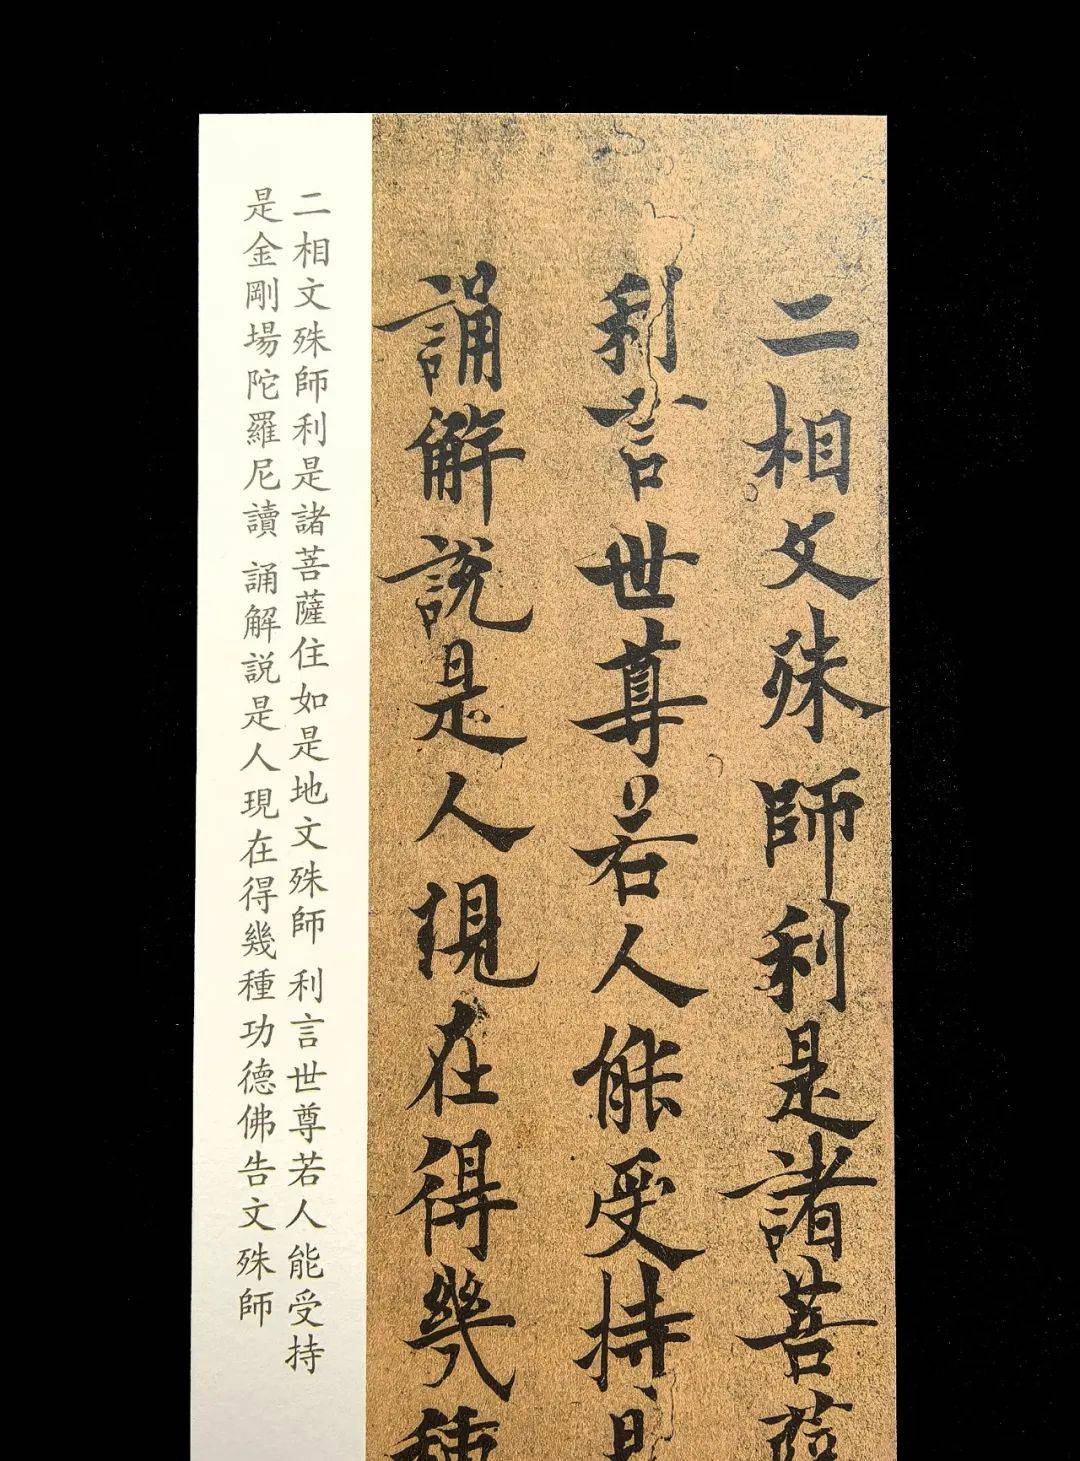 二相文殊師利是諸菩薩
利言世尊若人能受持是
誦解說是人現在得幾種
二相文殊師利是諸菩薩住如是地文殊師 利言世尊若人能受持
是金剛場陀羅尼讀 誦解説是人現在得幾種功德佛告文殊師